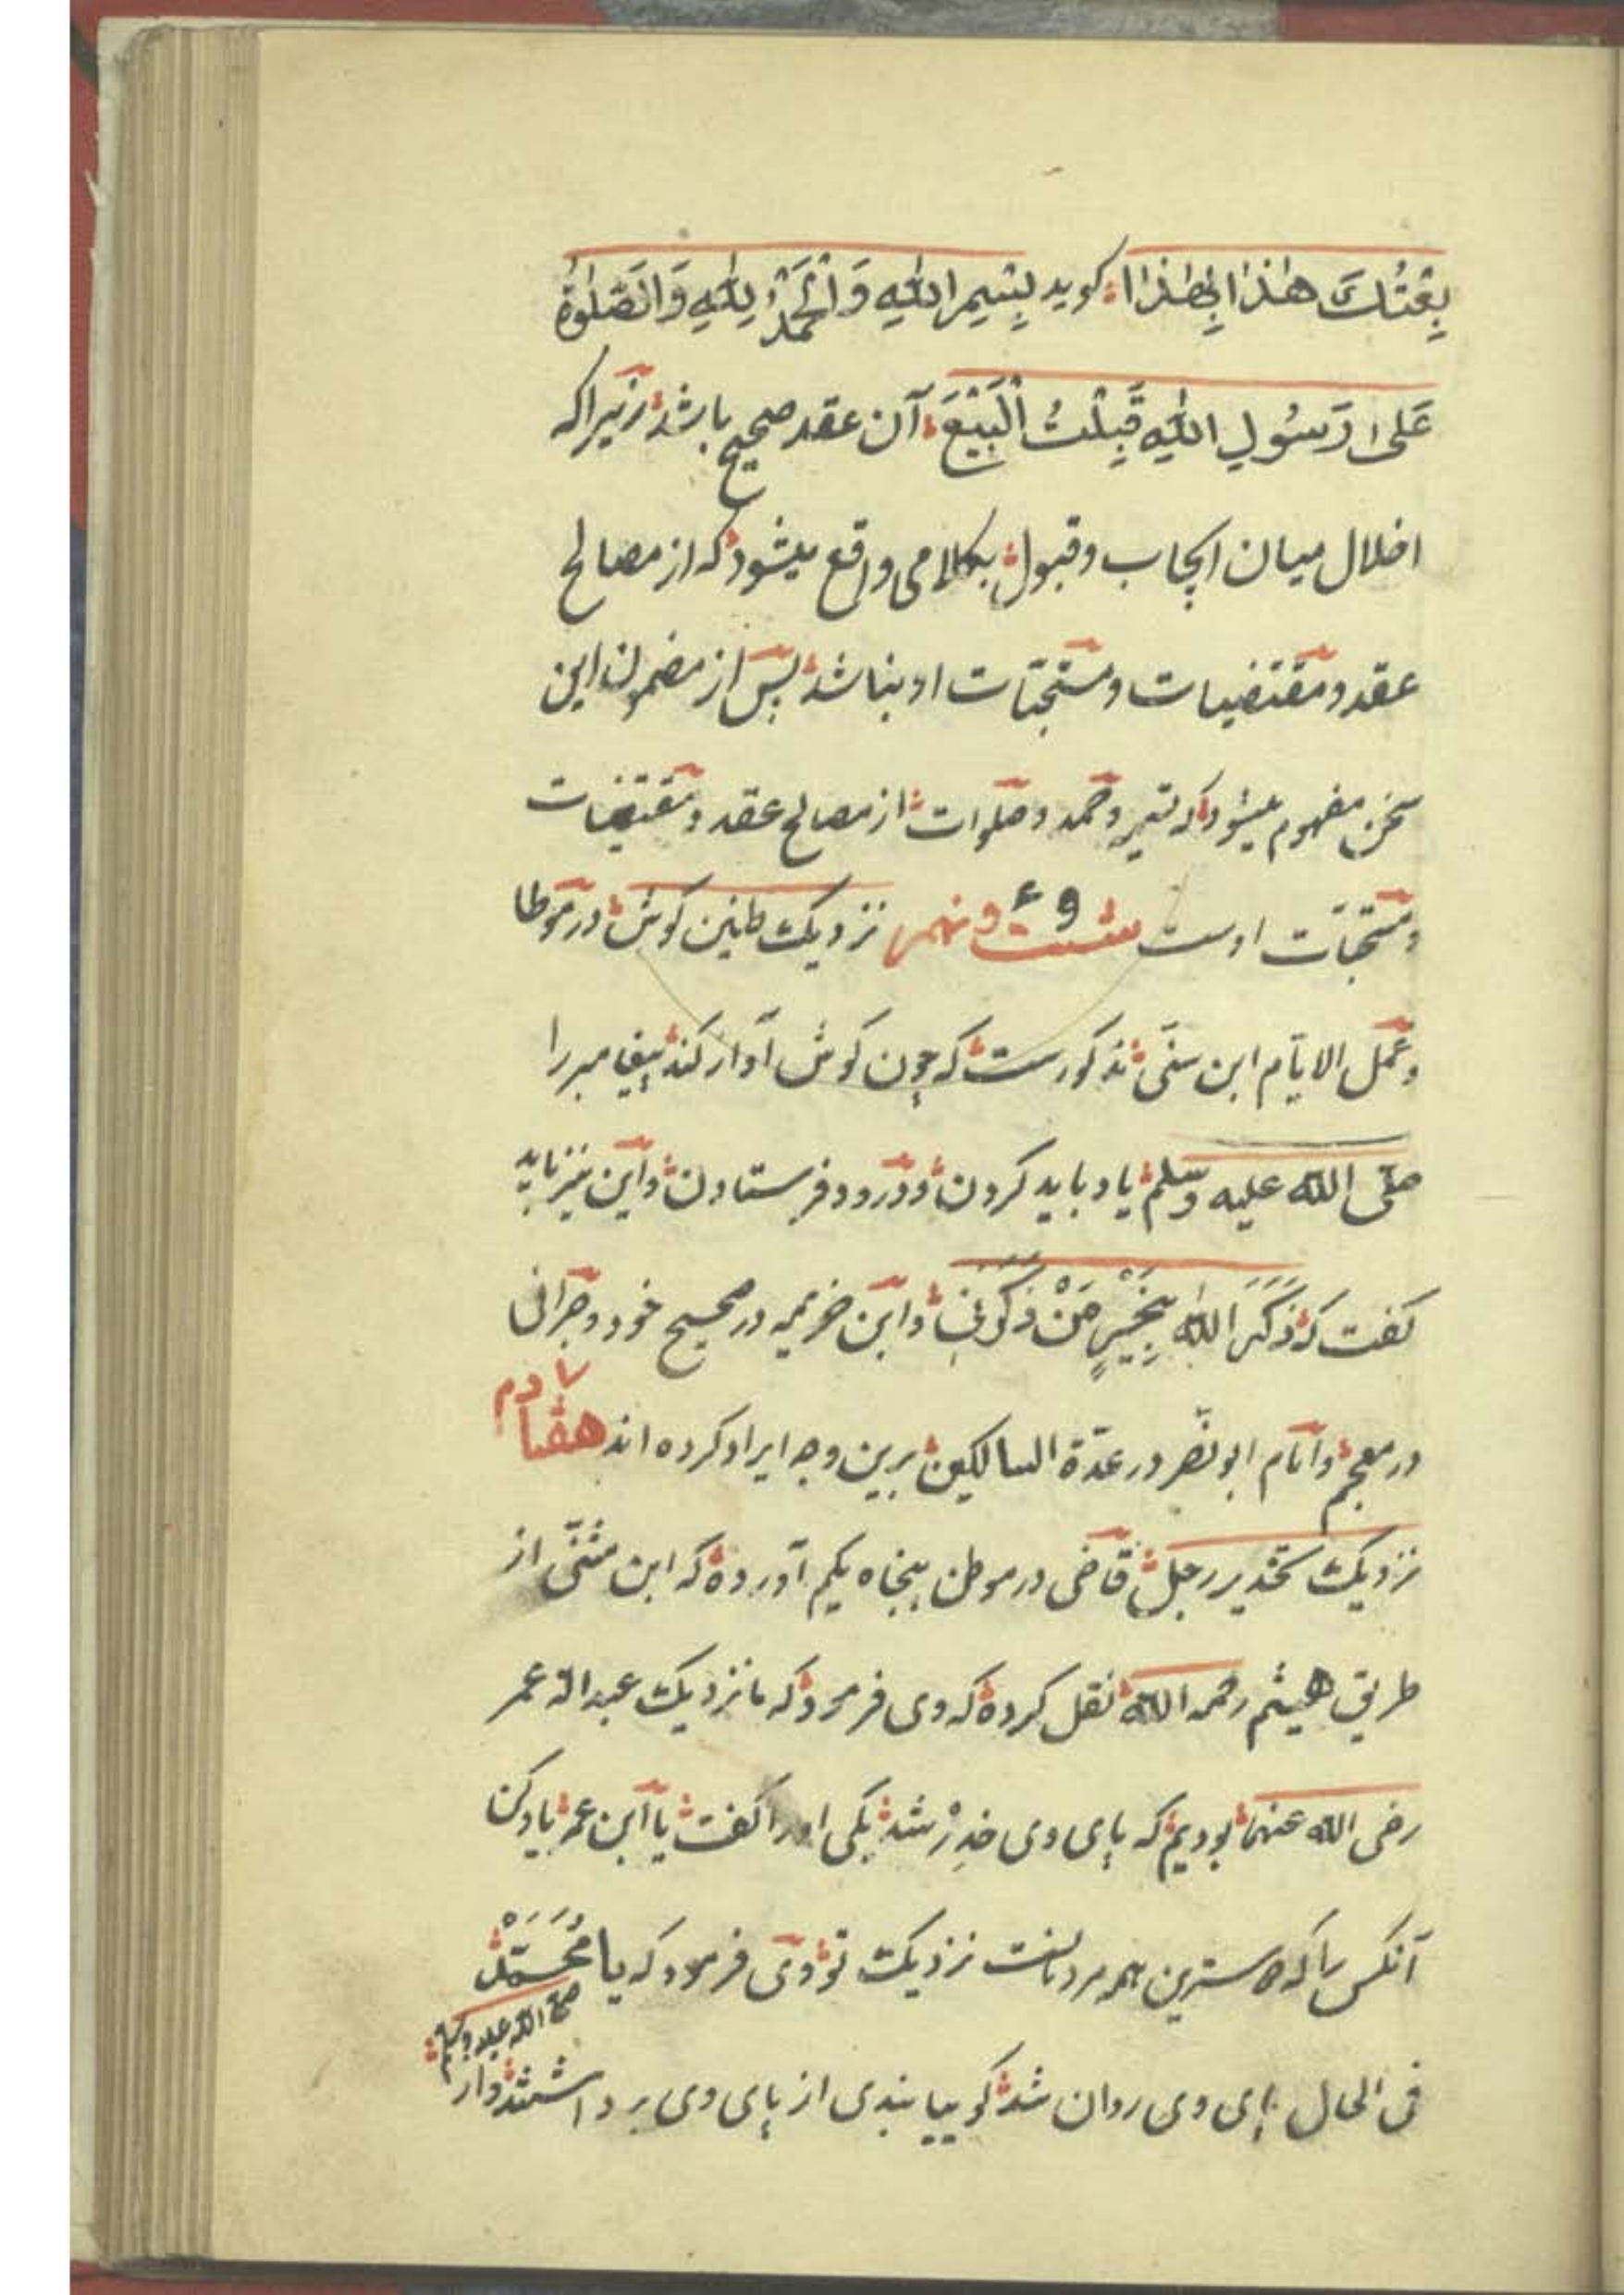 بِعْتُكَ هٰذَا بِهٰذَا گوید بِسْمِ اللهِ وَالْحَمْدُ لِلهِ وَالصَّلٰوةُ
عَلیٰ رَسُولِ اللهِ قَبِلْتُ الْبَیْعَ آن عقد صحیح باشد زیراکه
اخلال میان ایجاب وقبول بکلامی واقع میشود که از مصالح
عقد ومقتضیات ومستحبّات او نباشد پس از مضمون این
سخن مفهوم میشود که تسمیه وحمد وصلوات از مصالح عقد ومقتضیات
ومستحبّات اوست شست ونهم ۶۹ نزدیک طنین گوش در موطا
وعمل الایّام ابن سنّی مذکورست که چون گوش آواز کند پیغامبر را
صلّی الله علیه وسلم یاد باید کردن ودرود فرستادن واین نیز باید
گفت که ذَکَرَ اللهُ بِخَیْرٍ مَنْ ذَکَرَنِی وابن خزیمه در صحیح خود وطبرانی
در معجم وامام ابو نصر در عدّة السالکین برین وجه ایراد کرده اند هفتادم ۷
نزدیک تخدیر رجل قاضی در موطن پنجاه یکم آورده که ابن مثنّی از
طریق هیثم رحمه الله نقل کرده که وی فرمود که ما نزدیک عبد الله عمر
رضی الله عنهما بودیم که پای وی خَدِرْ شد یکی اورا گفت یا ابن عمر یاد کن
آنکس را که دوسترین همه مردمانست نزدیک تو وی فرمود که یا مُحَمَّدْ
صلی الله علیه وسلم
فی الحال پای وی روان شد گوییا بندی از پای وی برداشتند واز